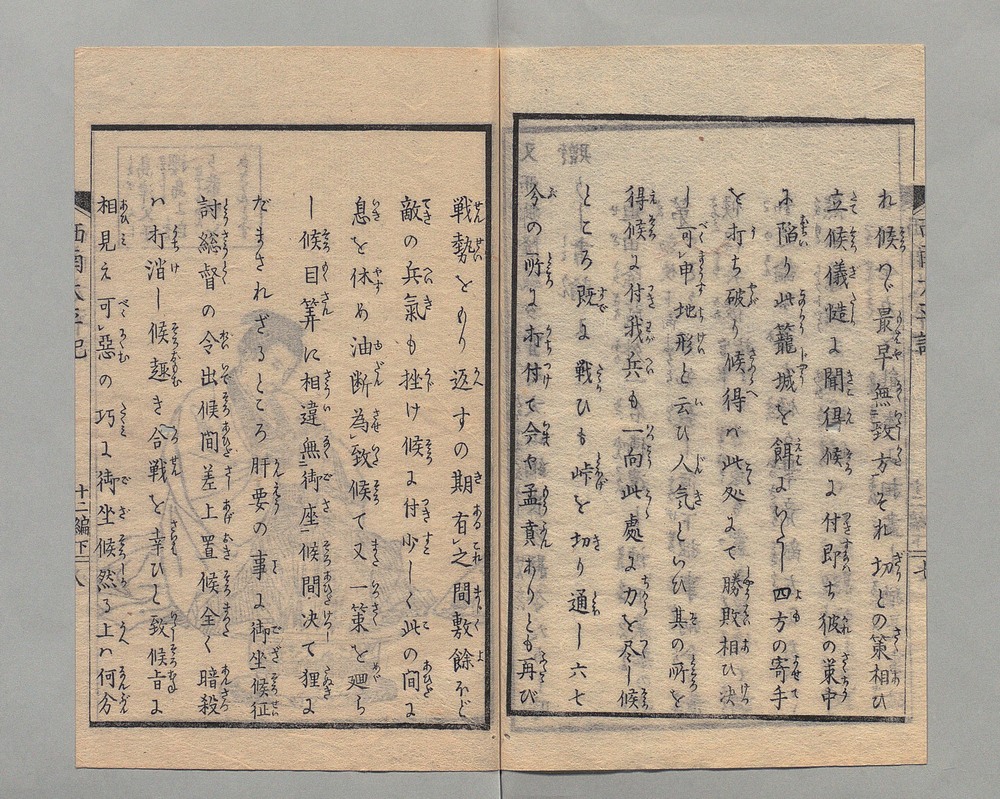 れ候へバ最早無致方それ切との策相ひ
立候儀慥に聞得候に付即ち彼の策中
に陥り此籠城を餌にいたし四方の寄手
を打ち破り候得バ此処にて勝敗相ひ決
し可申地形と云ひ人気といひ其の所を
得候に付我兵も一向此處に力を尽し候
ところ既に戦ひも峠を切り通し六七
今の所に打付て今や孟賁ありとも再び
戦勢をもり返すの期有之間敷餘ほど
敵の兵氣も挫け候に付少しく此の間に
息を休め油断為致候て又一策を廻ら
し候目算に相違無御座候間决て狸に
だまされざるところ肝要の事に御坐候征
討総督の令出候間差上置候全く暗殺
ハ打消し候趣き合戦を幸ひと致候旨に
相見え可悪の巧に御坐候然る上ハ何分
西南太平記
十二編下
八